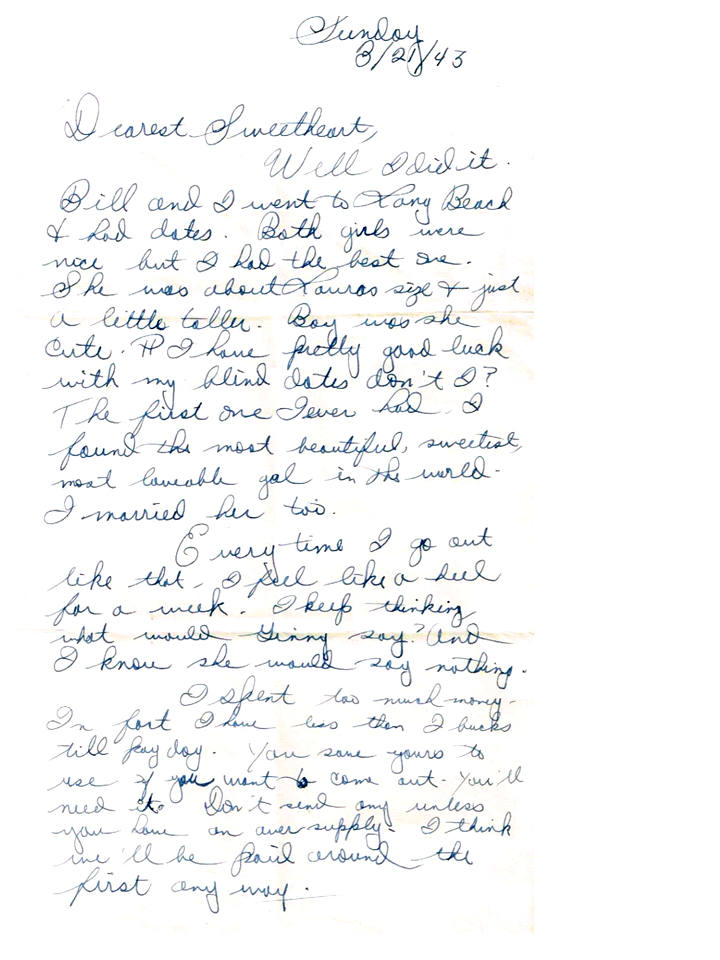 Sunday
3/21/43
Dearest Sweetheart,
Well I did it.
Bill and I went to Long Beach
& had dates. Both girls were
nice but I had the best one.
She was about Lauras size & just
a little taller. Boy was she
cute. I have pretty good luck
with my blind dates don't I?
The first one I ever had. I
found the most beautiful, sweetest,
most loveable gal in the world.
I married her too.
Every time I go out
like that, I feel like a heel
for a week. I keep thinking
what would Ginny say? And
I know she would say nothing.
I spent too much money.
In fact I have less than 2 bucks
till pay day. You save yours to
use if you want to come out. You'll
need it. Don't send any unless
you have an over supply. I think
we'll be paid around the
first any way.